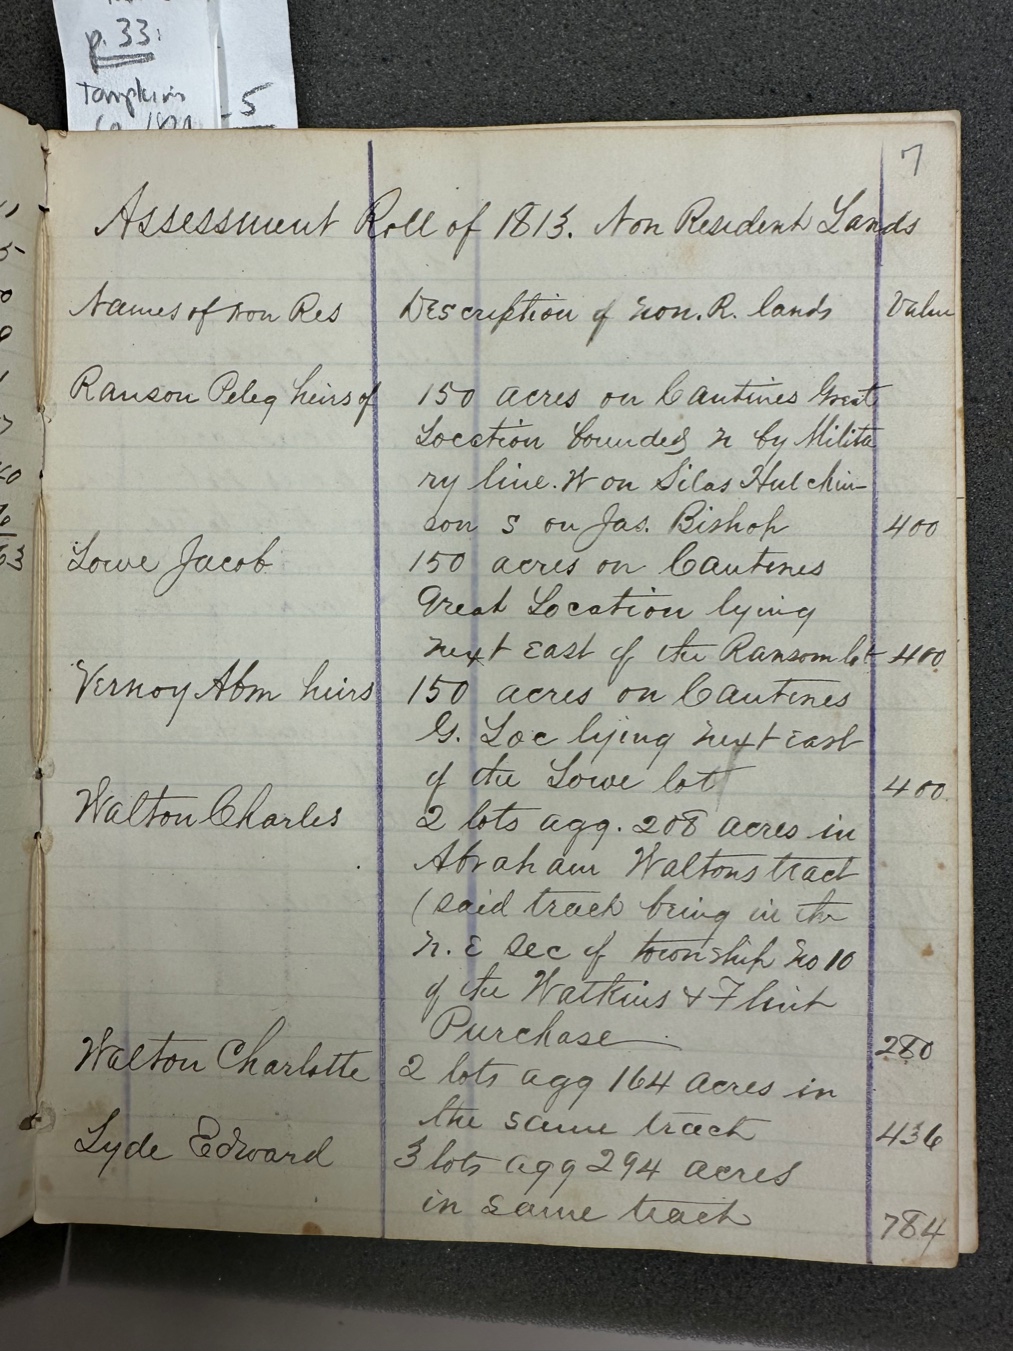 p. 33:
Tompkins
Co. 5
7
Assessment Roll of 1813. Non Resident Lands
Names of non Res Description of non. R. lands Value
Ranson Peleg heirs of 150 acres on Cantines Great
Location bounded N by Milita
ry line. W on Silas Hutchin-
son S on Jas. Bishop 400
Lowe Jacob 150 acres on Cantines
Great Location lying
next east of the Ransom lot 400
Vernoy Abm heirs 150 acres on Cantines
G. Loc lying next east
of the Lowe lot 400
Walton Charles 2 lots agg. 208 acres in
Abraham Waltons tract
(said track being in the
N. E sec of township No 10
of the Watkins & Flint
Purchase 280
Walton Charlotte 2 lots agg 164 acres in
the same tract 436
Lyde Edward 3 lots agg 294 acres
in same track 784